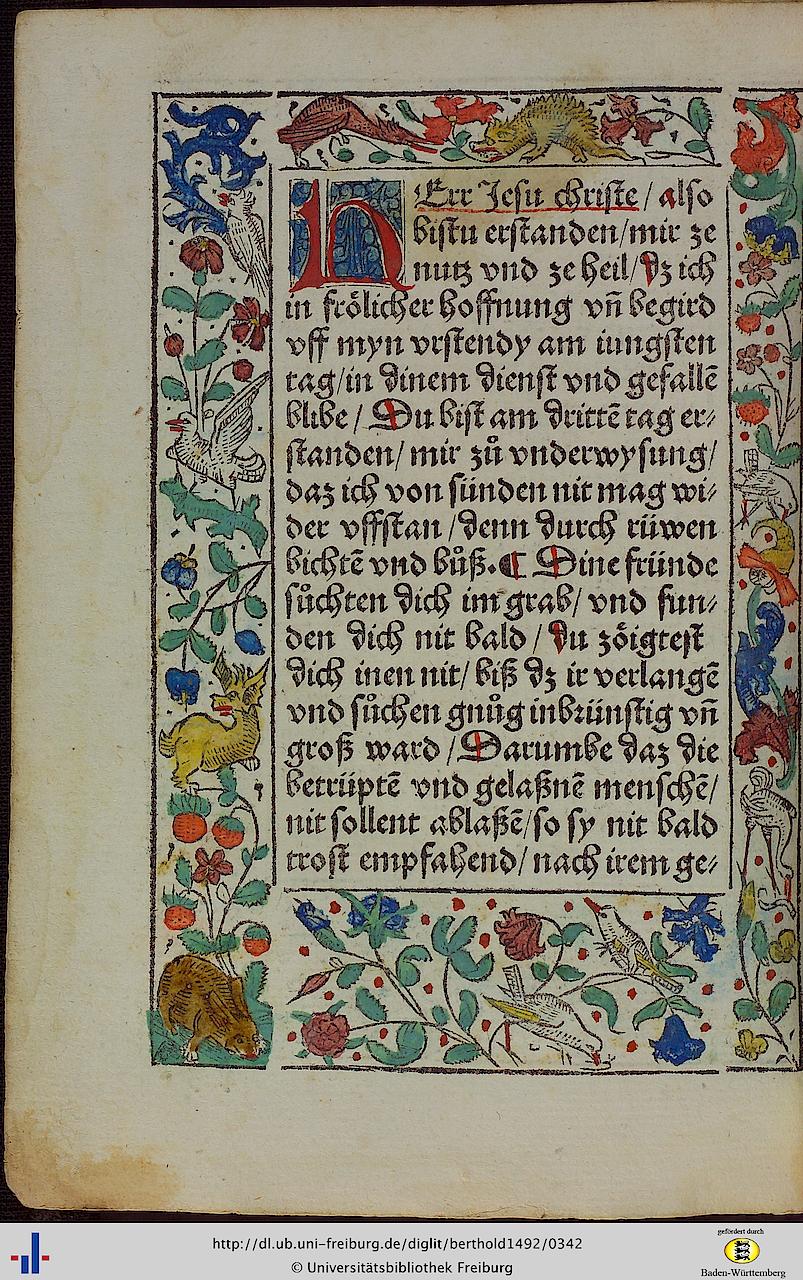 HErr Jesu christe / also
bistu erstanden/mir ze
nutz vnd ze heil/dz ich
in frölicher hoffnung vn̄ begird
vff myn vrstendy am iungsten
tag/in dinem dienst vnd gefallē
blibe / Du bist am drittē tag er⸗
standen/ mir zů vnderwysung/
daz ich von sünden nit mag wi⸗
der vffstan /denn durch rüwen
bichtē vnd bůß. ¶ Dine fründe
sůchten dich im grab/ vnd fun⸗
den dich nit bald / du zöigtest
dich inen nit/ biß dz ir verlangē
vnd sůchen gnůg inbrünstig vn̄
groß ward /Darumbe daz die
betrüptē vnd gelaßnē menschē/
nit sollent ablaßē/so sy nit bald
trost empfahend/ nach irem ge⸗
http://dl.ub.uni-freiburg.de/diglit/berthold1492/0342
© Universitätsbibliothek Freiburg
gefördert durch
Baden-Württemberg